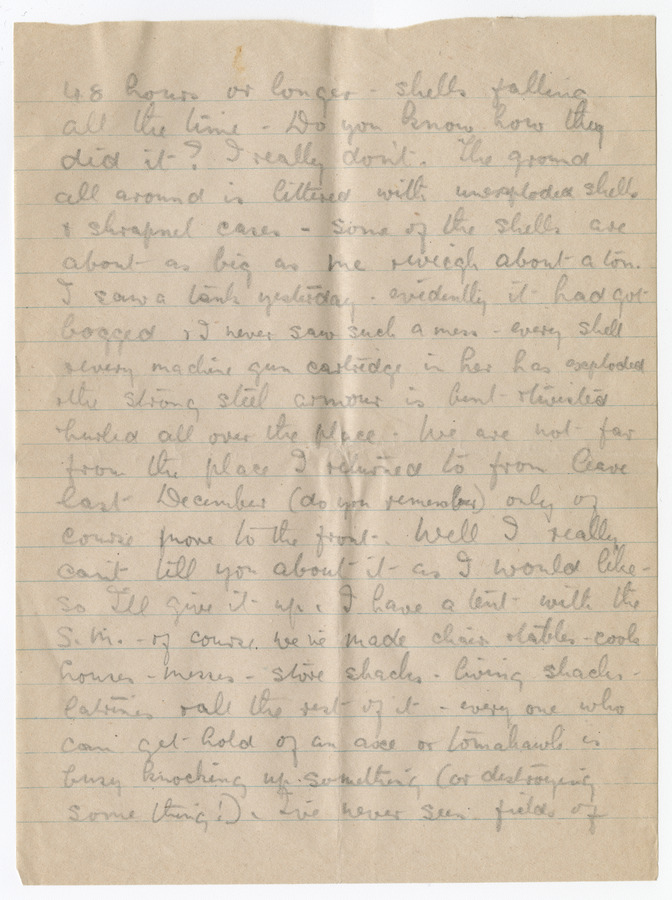 48 hours or longer - shells falling
all the time - Do you know how they
did it? I really don't. The ground
all around is littered with unexploded shells
& shrapnel cases - some of the shells are
about as big as me & weigh about a ton.
I saw a tank yesterday - evidently it had got
bogged & I never saw such a mess - every shell
& every machine gun cartridge in her has exploded
& the strong steel armour is bent & twisted
& hurled all over the place. We are not far
from the place I returned to from leave
last December (do you remember) only of
course more to the front. Well I really
can't tell you about it as I would like -
so I'll give it up. I have a tent with the
S.M. - of course we've made chairs & tables - cook
houses - messes - store shacks - living shacks -
latrines & all the rest of it - every one who
can get hold of an axe or tomahawk is
busy knocking up something (or destroying
something!). I've never seen fields of